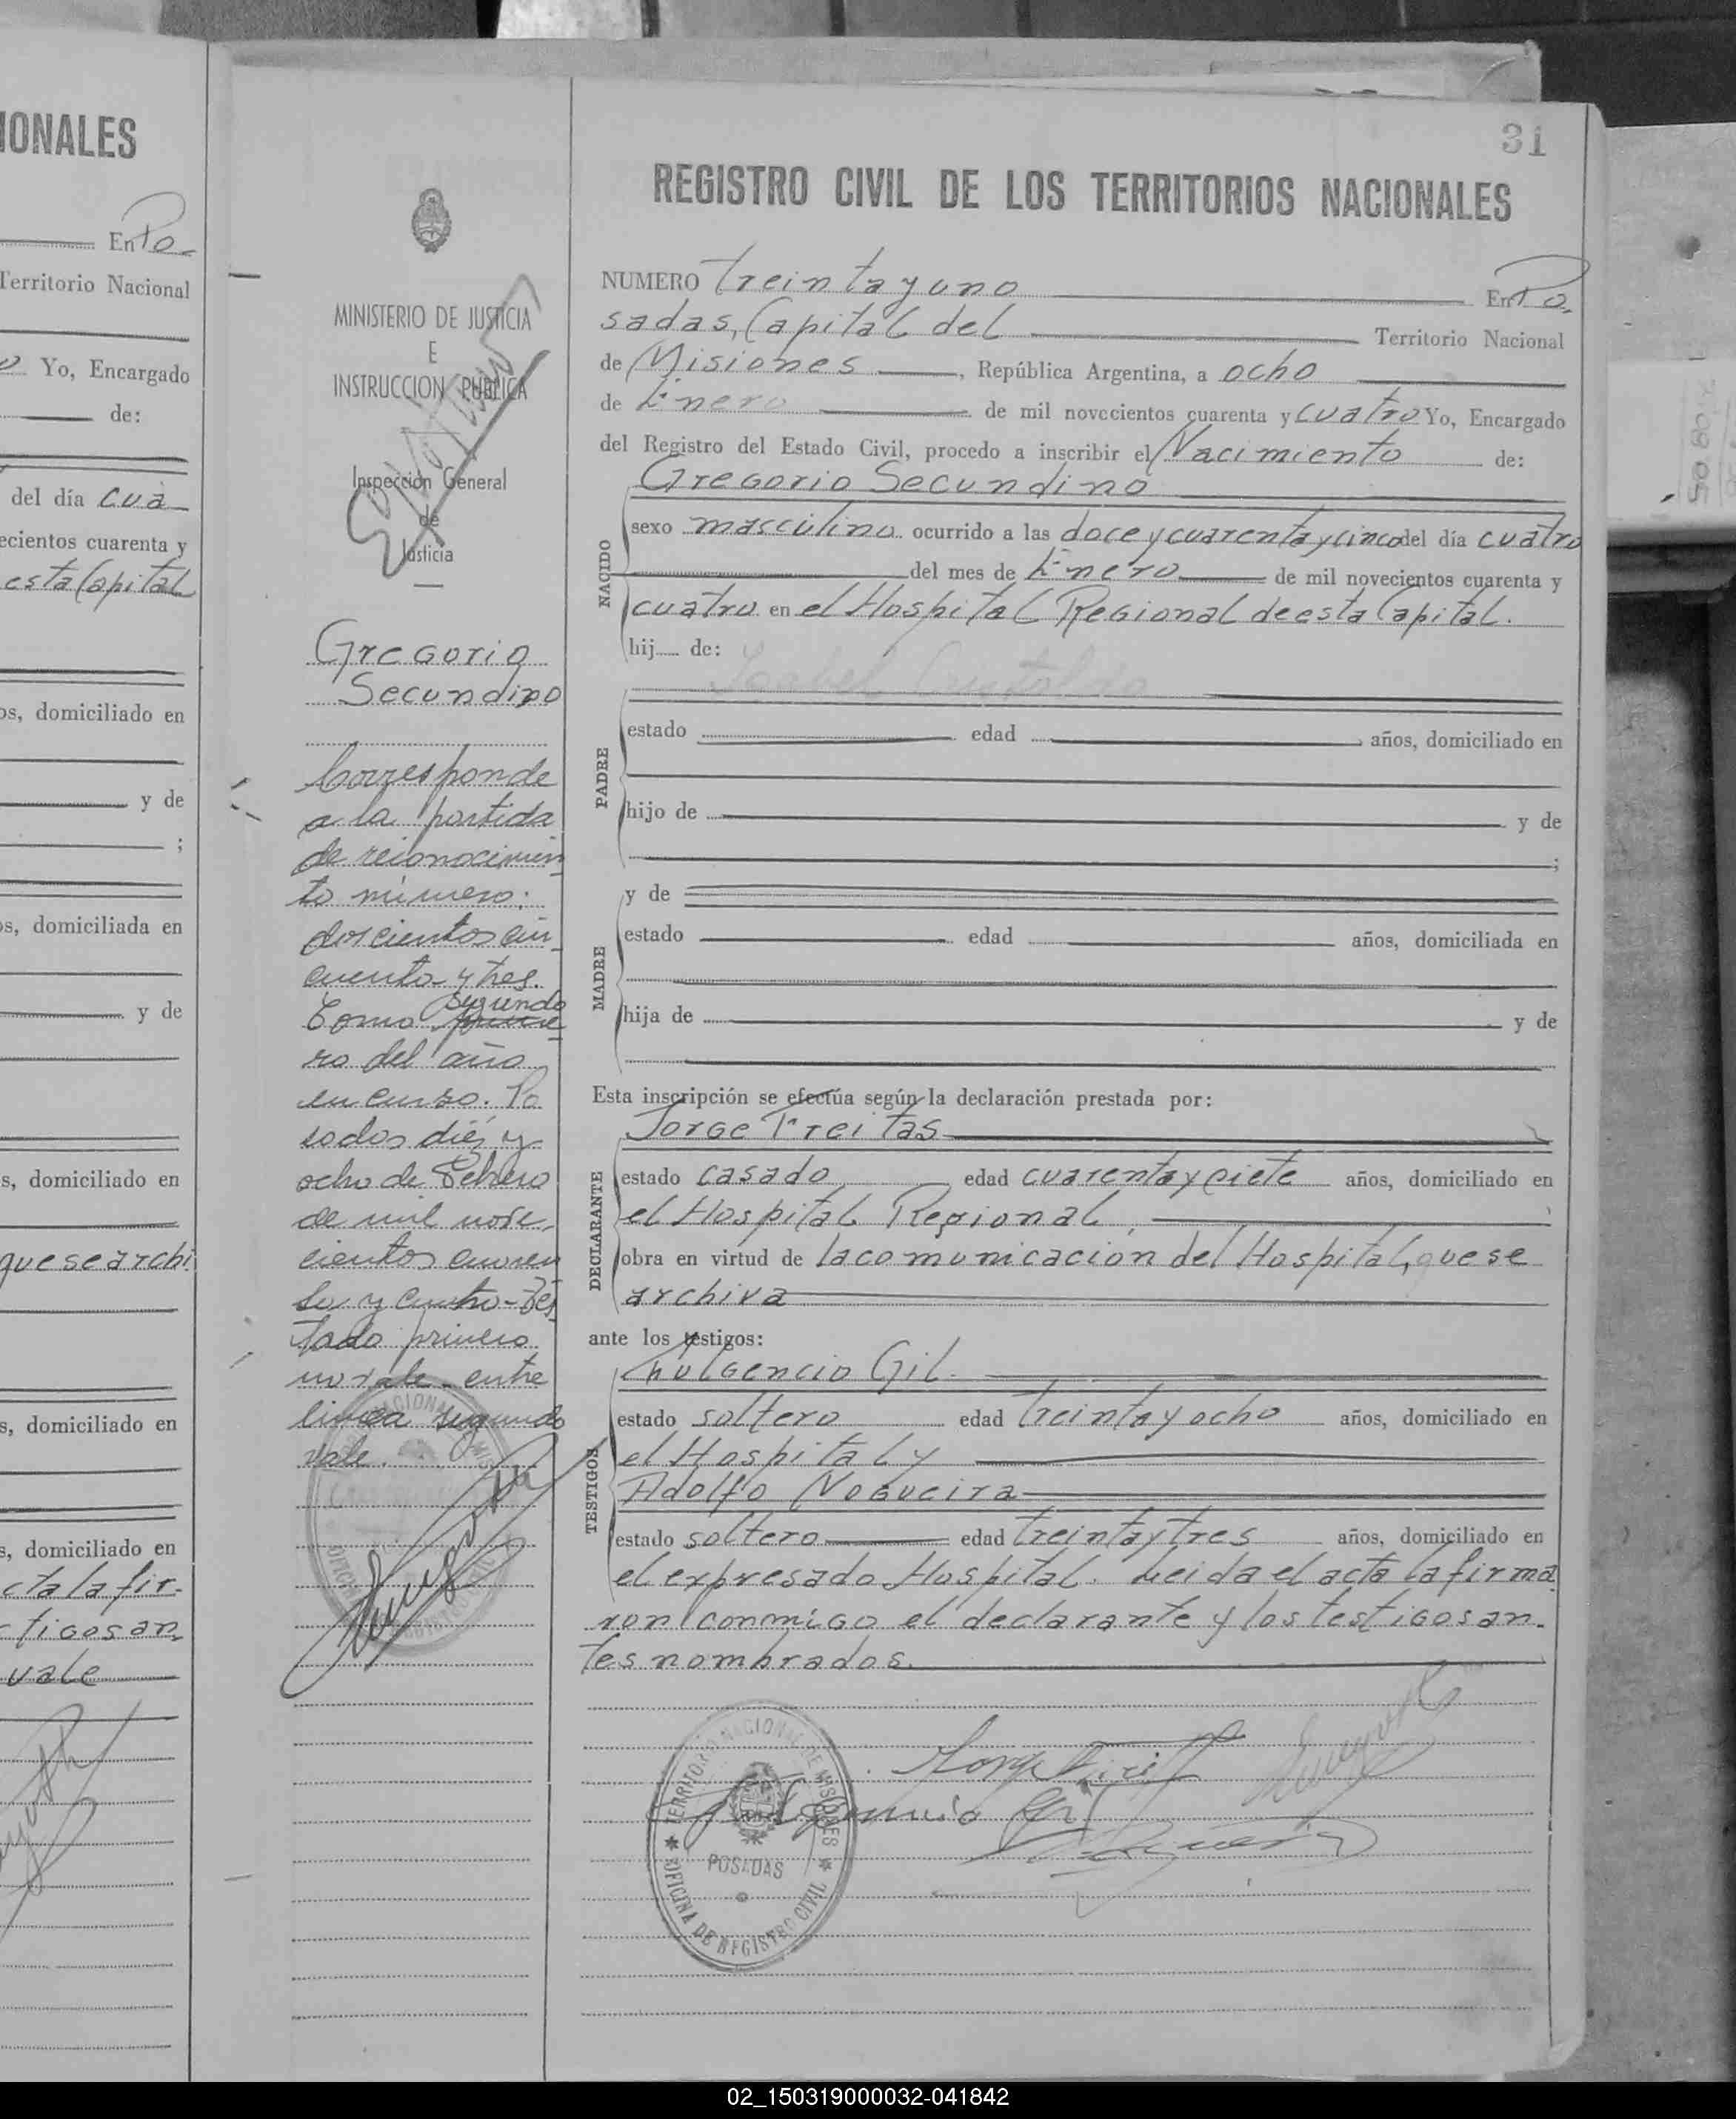 IONALES
En Po-
Territorio Nacional
Yo, Encargado
de:
del día cua
ecientos cuarenta y
esta Capital
os, domiciliado en
y de
;
os, domiciliada en
y de
s, domiciliado en
que se archi
s, domiciliado en
s, domiciliado en
cta la fir-
tigos an
vale
31
REGISTRO CIVIL DE LOS TERRITORIOS NACIONALES
MINISTERIO DE JUSTICIA
E
INSTRUCCION PUBLICA
Inspección General
de
Justicia
Gregorio
Secundino
Corresponde
a la partida
de reconocimien
to número:
doscientos cin
cuenta y tres.
Tomo segundo prime
ro del año
en curso. Po
sadas diez y
ocho de Febrero
de mil nove
cientos cuaren
ta y cuatro-Tes
tado primero
no vale - entre
linea segundo
vale.
NUMERO treinta y uno En Po
sadas, Capital del Territorio Nacional
de Misiones, República Argentina, a ocho
de Enero de mil novecientos cuarenta y cuatro Yo, Encargado
del Registro del Estado Civil, procedo a inscribir el Nacimiento de:
NACIDO
Gregorio Secundino
sexo masculino ocurrido a las doce y cuarenta y cinco del día cuatro
del mes de Enero de mil novecientos cuarenta y
cuatro en el Hospital Regional de esta Capital.
hij de:
PADRE
Isabel
estado edad años, domiciliado en
hijo de y de
;
y de
MADRE
estado edad años, domiciliada en
hija de y de
Esta inscripción se efectúa según la declaración prestada por:
DECLARANTE
Jorge Freitas
estado casado edad cuarenta y ciete años, domiciliado en
el Hospital Regional
obra en virtud de la comunicación del Hospital, que se
archiva
ante los testigos:
TESTIGOS
Fulgencio Gil
estado soltero edad treinta y ocho años, domiciliado en
el Hospital y
Adolfo Nogueira
estado soltero edad treinta y tres años, domiciliado en
el expresado Hospital. Leida el acta la firma
ron conmigo el declarante y los testigos an-
tes nombrados.
TERRITORIO NACIONAL DE MISIONES
POSADAS
OFICINA DE REGISTRO CIVIL
02_150319000032-041842